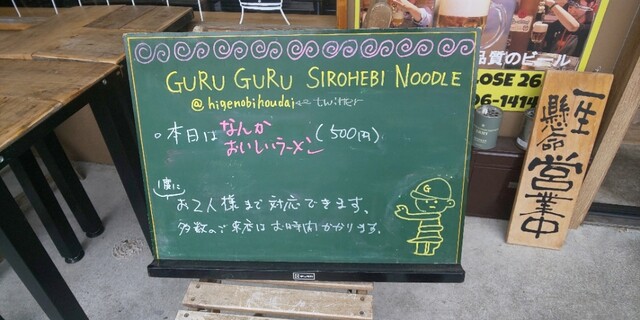 GURU GURU SIROHEBI NOODLE
@higenobihoudai ⇐ twitter
。本日は なんか おいしいラーメン (500円)
1度に
お2人様まで対応できます。
多数のご来店はお時間かかります。
G
品質のビール
LOSE 26
06-1414
一生懸命営業中